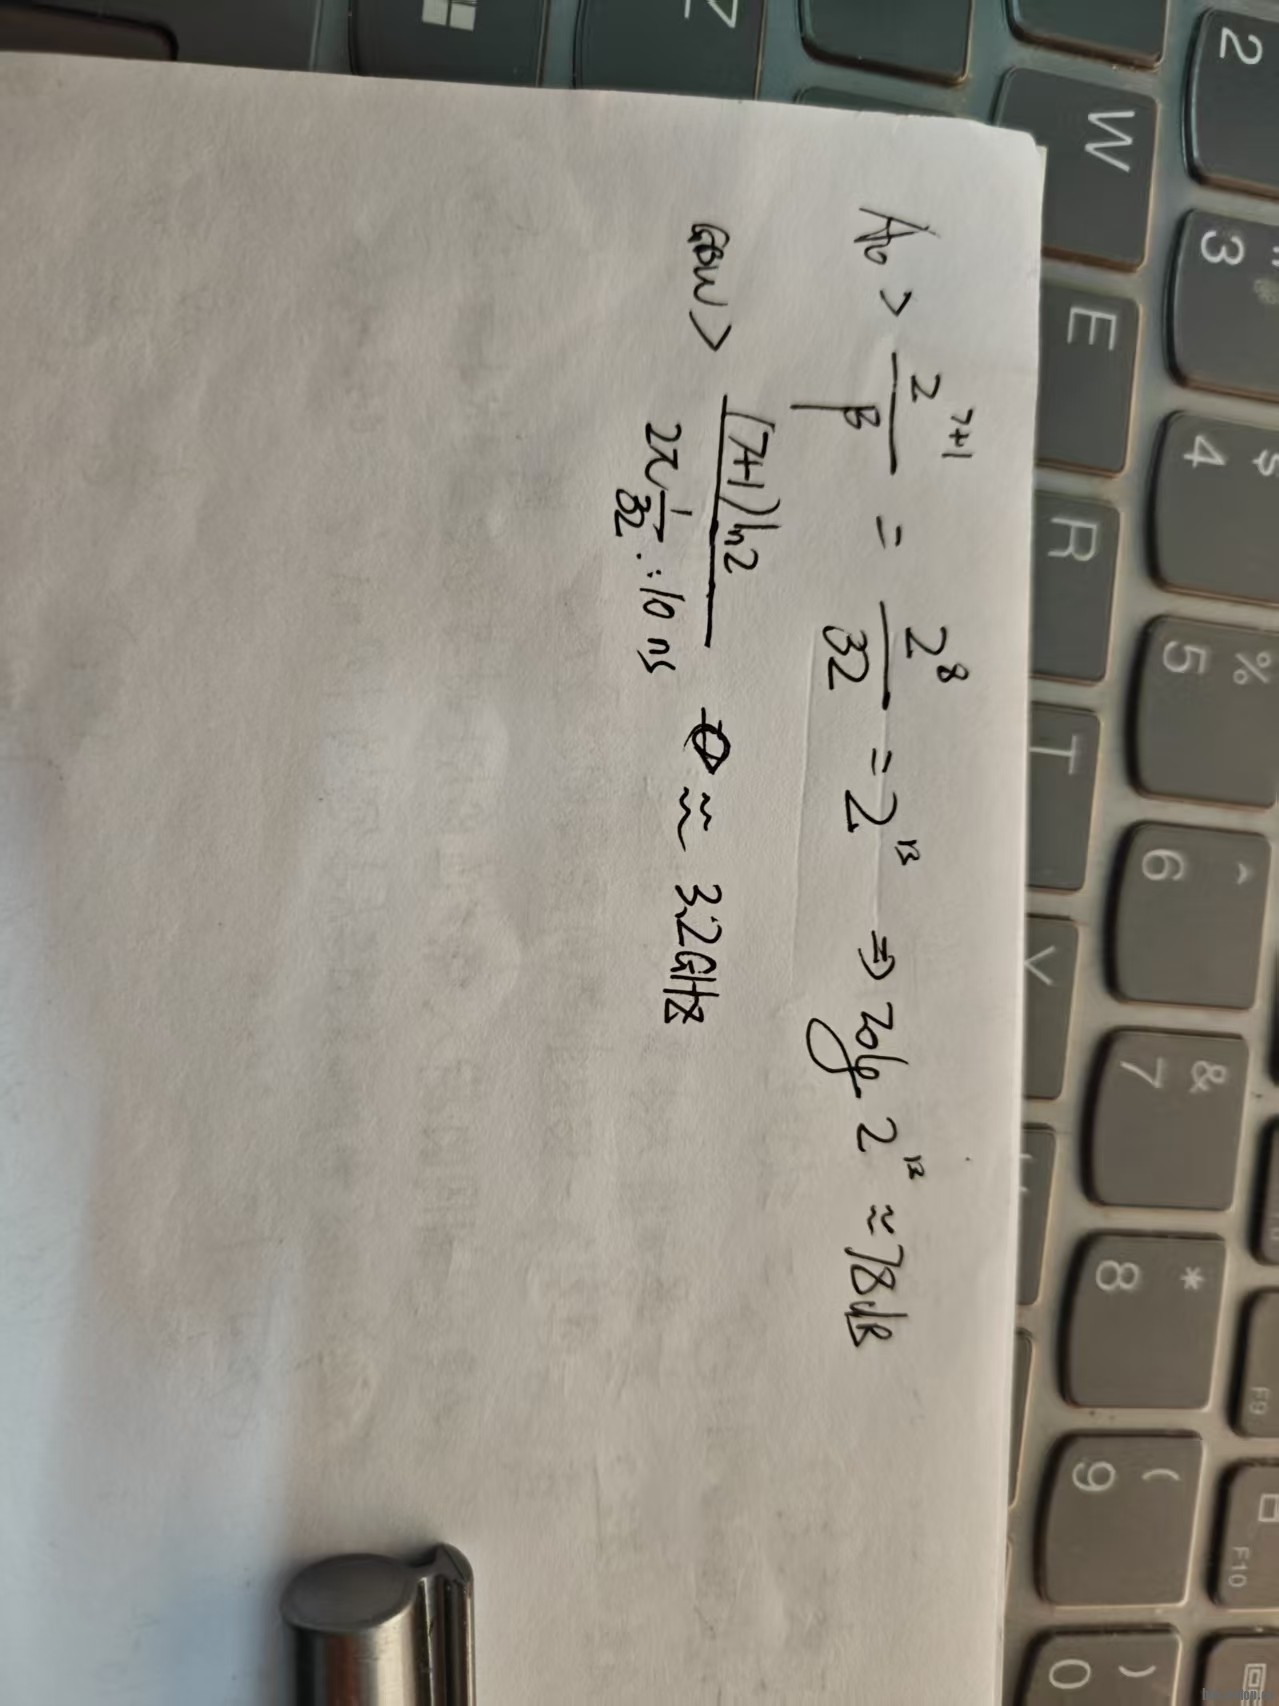 A₀ > 2^{7+1} / β = 2^8 / 32 = 2^{13} ⇒ 20lg 2^{13} ≈ 78dB
GBW > (7+1)ln2 / 2π 1/32 · 10ns ≈ 3.2GHz
2
W
3
E
$ 4
R
% 5
T
^ 6
Y
& 7
* 8
F9
( 9
F10
) 0
Z